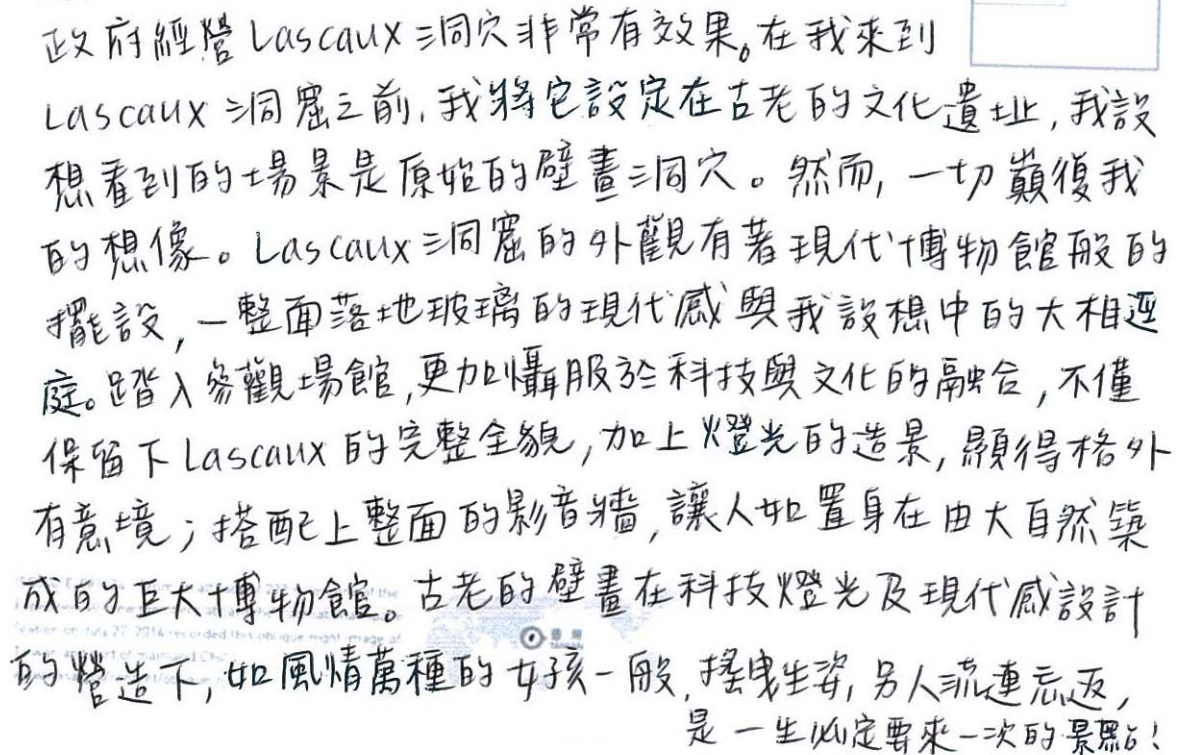 政府經營Lascaux洞穴非常有效果。在我來到
Lascaux洞窟之前,我將它設定在古老的文化遺址,我設
想看到的場景是原始的壁畫洞穴。然而,一切巔復我
的想像。Lascaux洞窟的外觀有著現代博物館般的
擺設,一整面落地玻璃的現代感與我設想中的大相逕
庭。踏入參觀場館,更加懾服於科技與文化的融合,不僅
保留下Lascaux的完整全貌,加上燈光的造景,顯得格外
有意境;搭配上整面的影音牆,讓人如置身在由大自然築
成的巨大博物館。古老的壁畫在科技燈光及現代感設計
的營造下,如風情萬種的女孩一般,搖曳生姿,另人流連忘返,
是一生必定要來一次的景點!